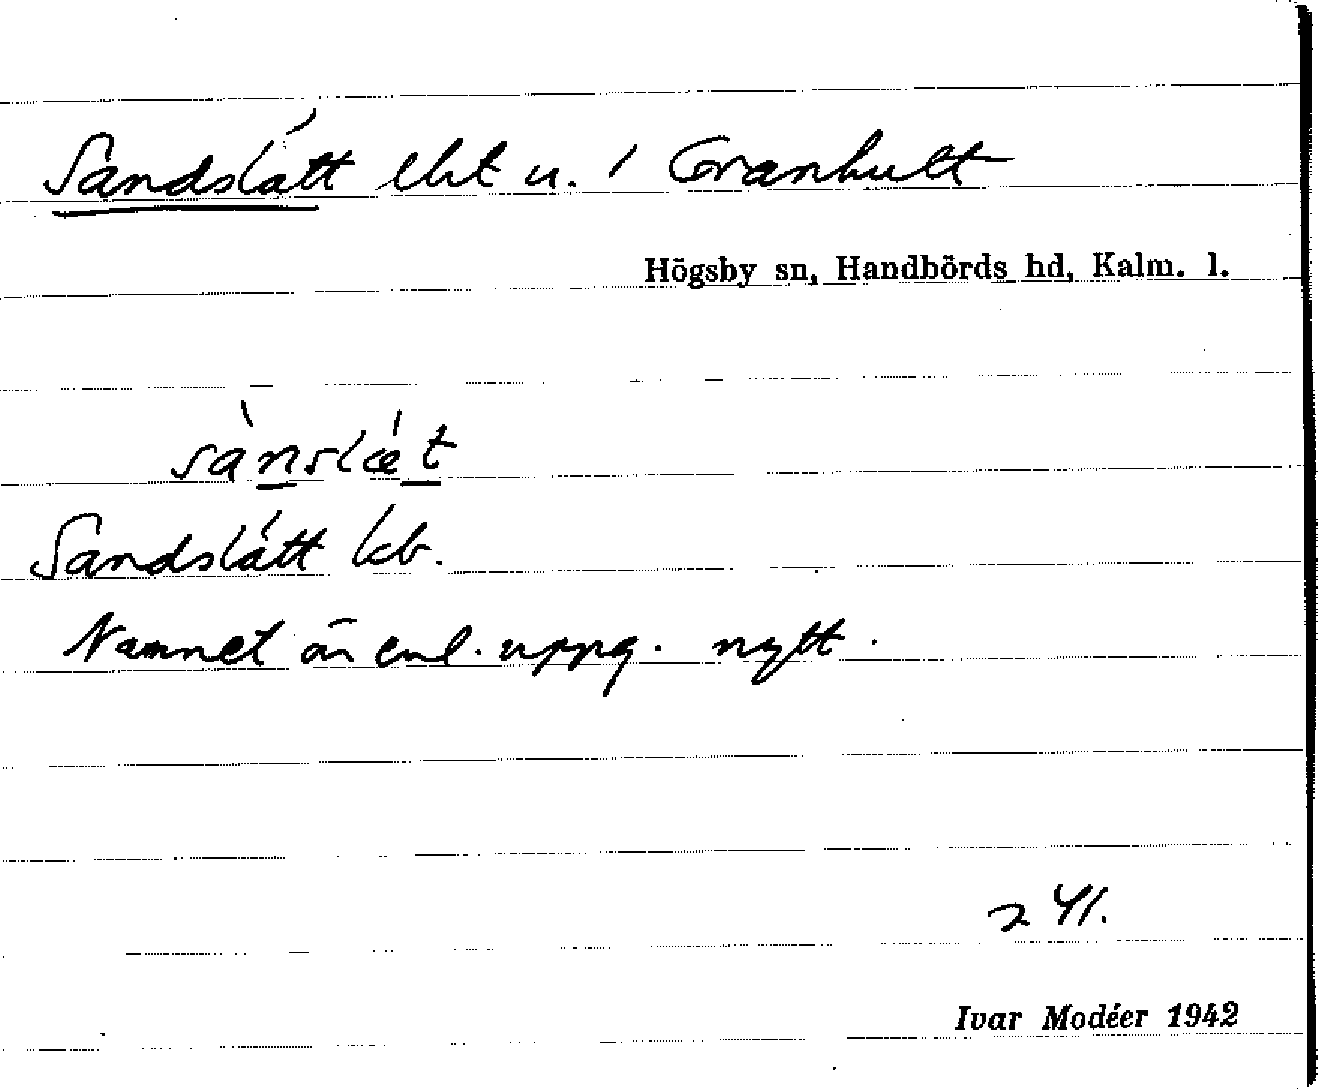 Sandslätt lht u. / Granhult
Högsby sn, Handbörds hd, Kalm. l.
sànslǽt
Sandslätt kb.
Namnet är enl. uppg. nytt.
241.
Ivar Modéer 1942